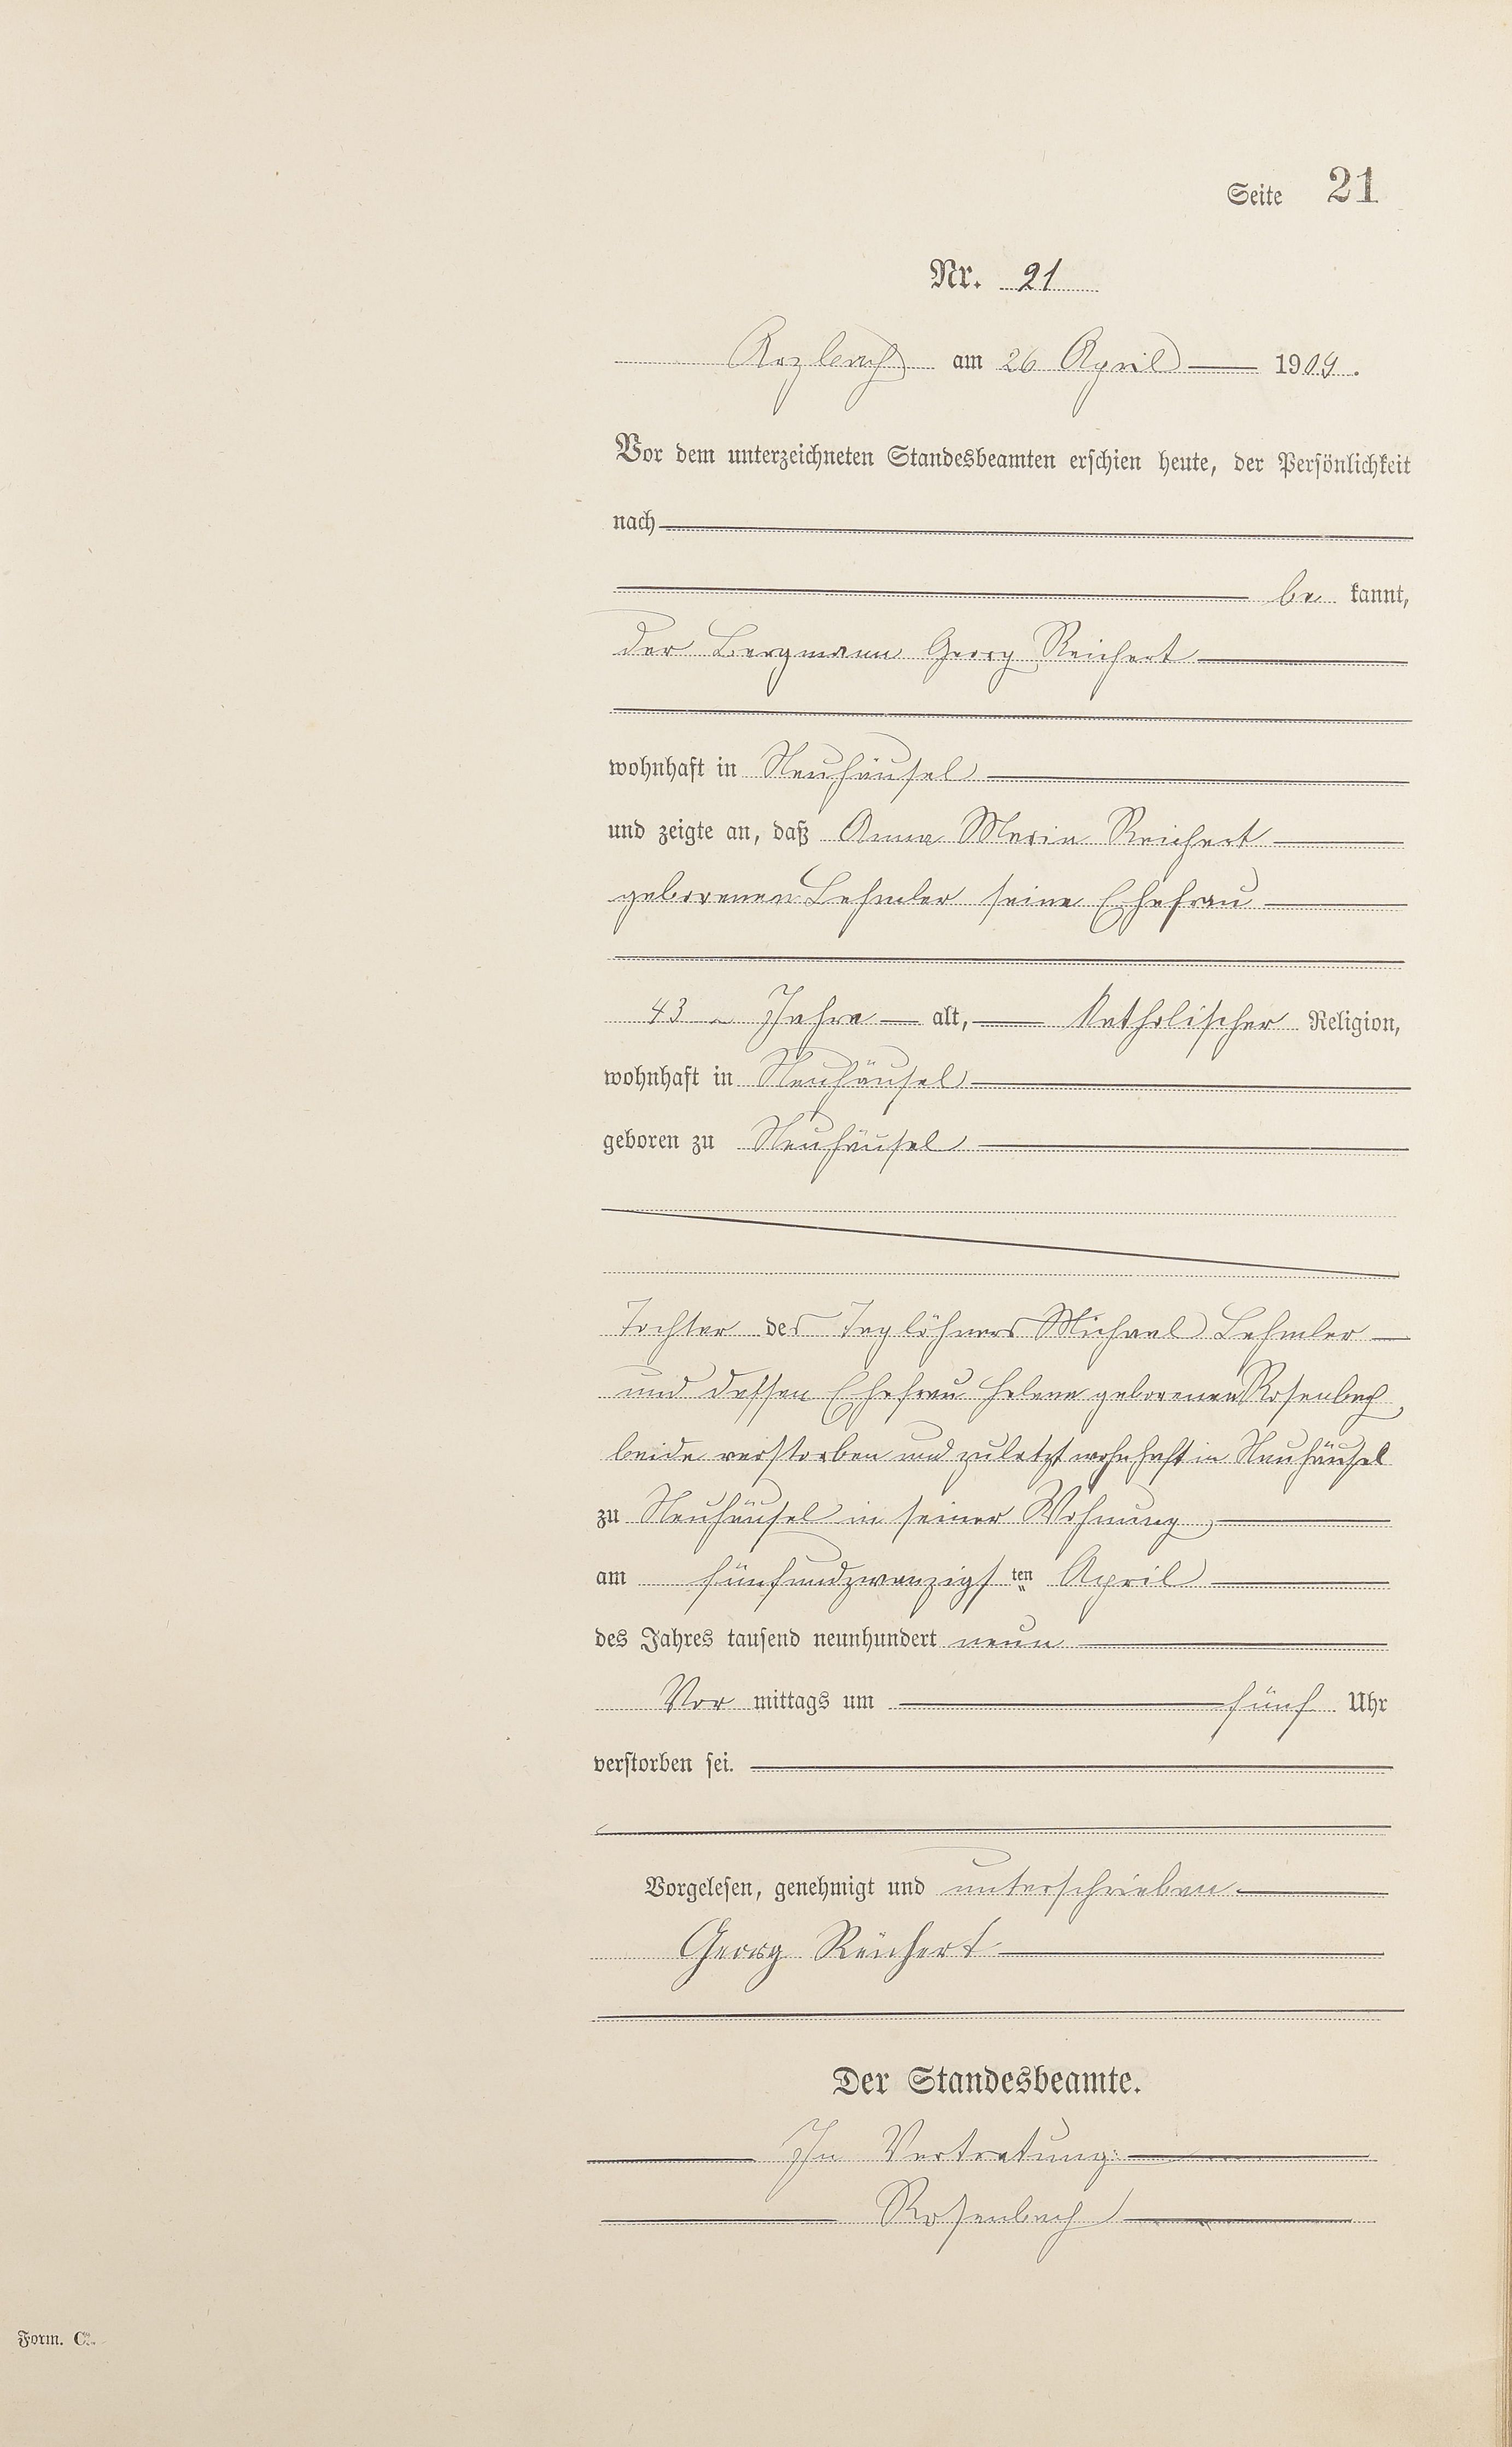 Seite 21
Nr. 21
Arzbach am 26 April 1909.
Vor dem unterzeichneten Standesbeamten erschien heute, der Persönlichkeit
nach
be kannt,
der Bergmann Georg Reichert
wohnhaft in Neuhäusel
und zeigte an, daß Anna Maria Reichert
geborenen Lehmler seine Ehefrau
43 Jahre alt, Katholischer Religion,
wohnhaft in Neuhäusel
geboren zu Neuhäusel
Tochter des Taglöhners Michael Lehmler
und dessen Ehefrau Helene geborenen Rosenbach,
beide verstorben und zuletzt wohnhaft in Neuhäusel
zu Neuhäusel in seiner Wohnung,
am fünfundzwanzigsten April
des Jahres tausend neunhundert neun
Vor mittags um fünf Uhr
verstorben sei.
Vorgelesen, genehmigt und unterschrieben
Georg Reichert
Der Standesbeamte.
In Vertretung:
Rosenbach
Form. C.